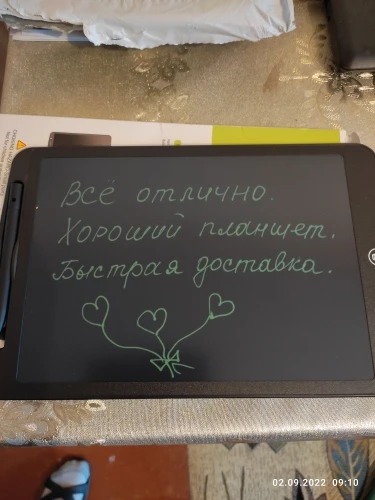 Всё отлично.
Хороший планшет.
Быстрая доставка.
02.09.2022 09:10